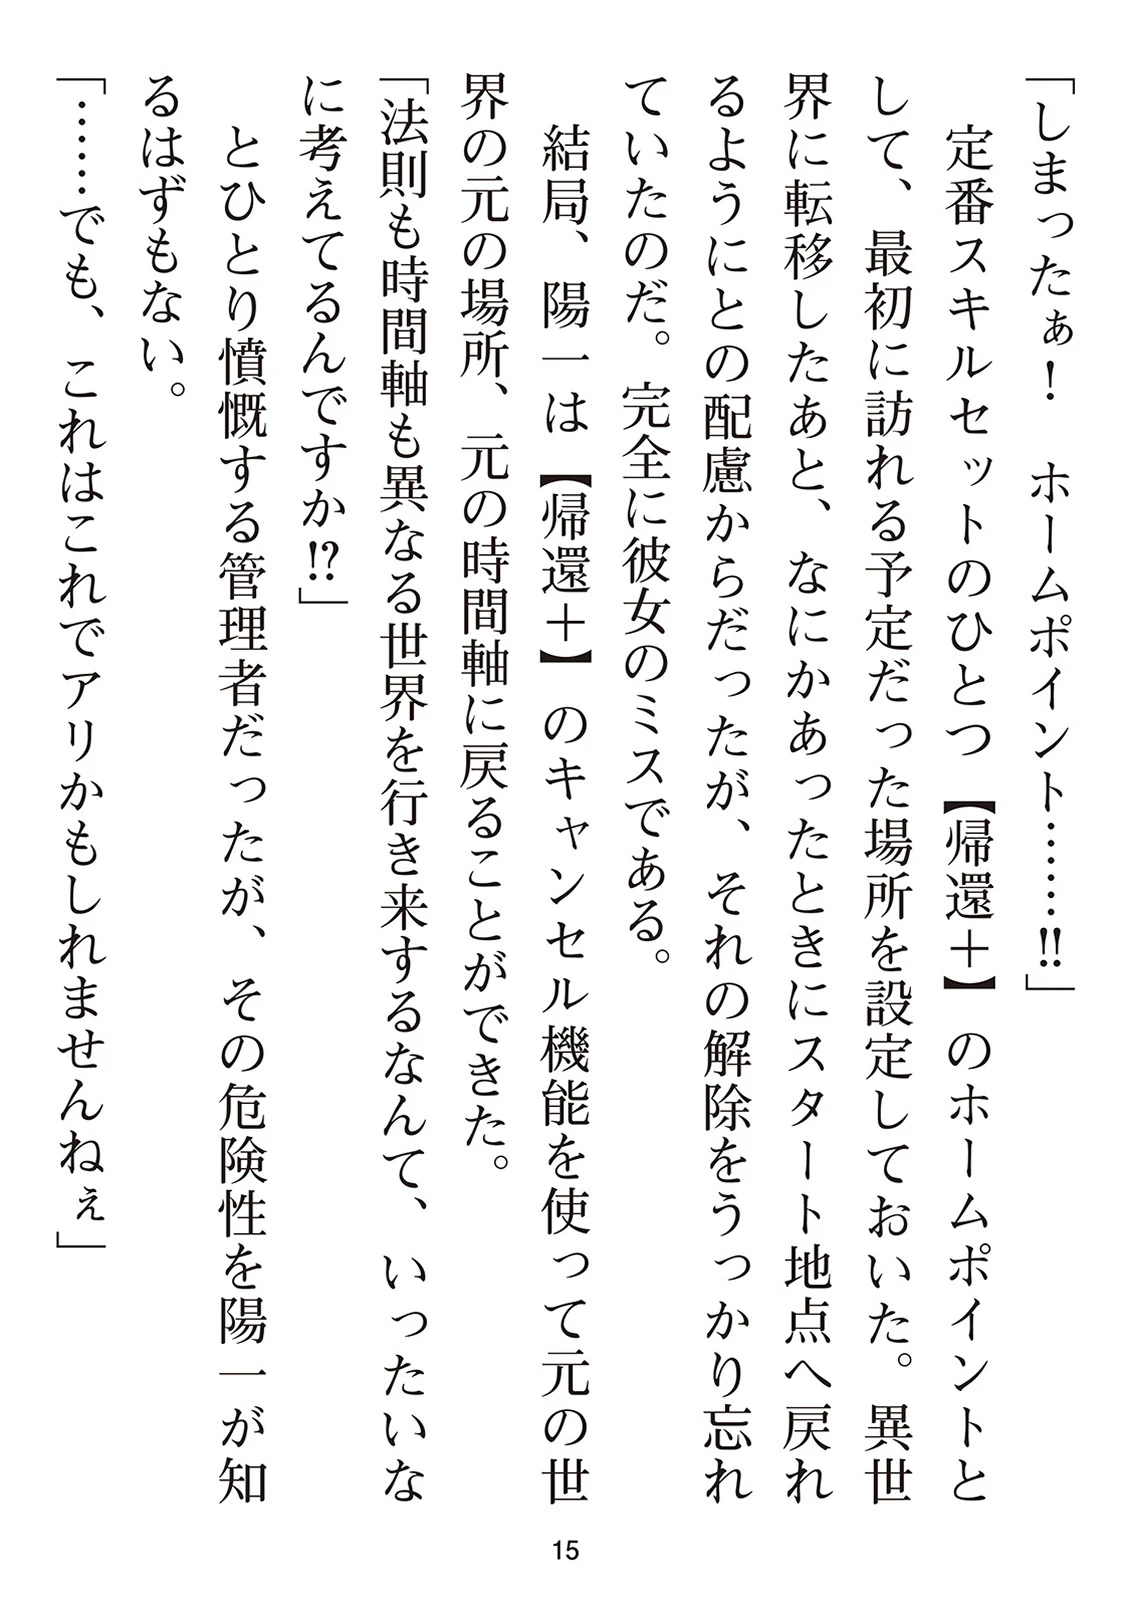 「しまったぁ！　ホームポイント………!!」
　定番スキルセットのひとつ【帰還＋】のホームポイントと
して、最初に訪れる予定だった場所を設定しておいた。異世
界に転移したあと、なにかあったときにスタート地点へ戻れ
るようにとの配慮からだったが、それの解除をうっかり忘れ
ていたのだ。完全に彼女のミスである。
　結局、陽一は【帰還＋】のキャンセル機能を使って元の世
界の元の場所、元の時間軸に戻ることができた。
「法則も時間軸も異なる世界を行き来するなんて、いったいな
に考えてるんですか!?」
　とひとり憤慨する管理者だったが、その危険性を陽一が知
るはずもない。
「……でも、これはこれでアリかもしれませんねぇ」
15